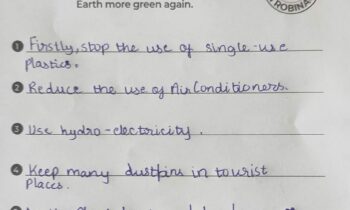 Earth more green again.
ROBINA
1 Firstly, stop the use of single-use
plastics.
2 Reduce the use of Air Conditioners.
3 Use hydro-electricity.
4 Keep many dustbins in tourist
places.